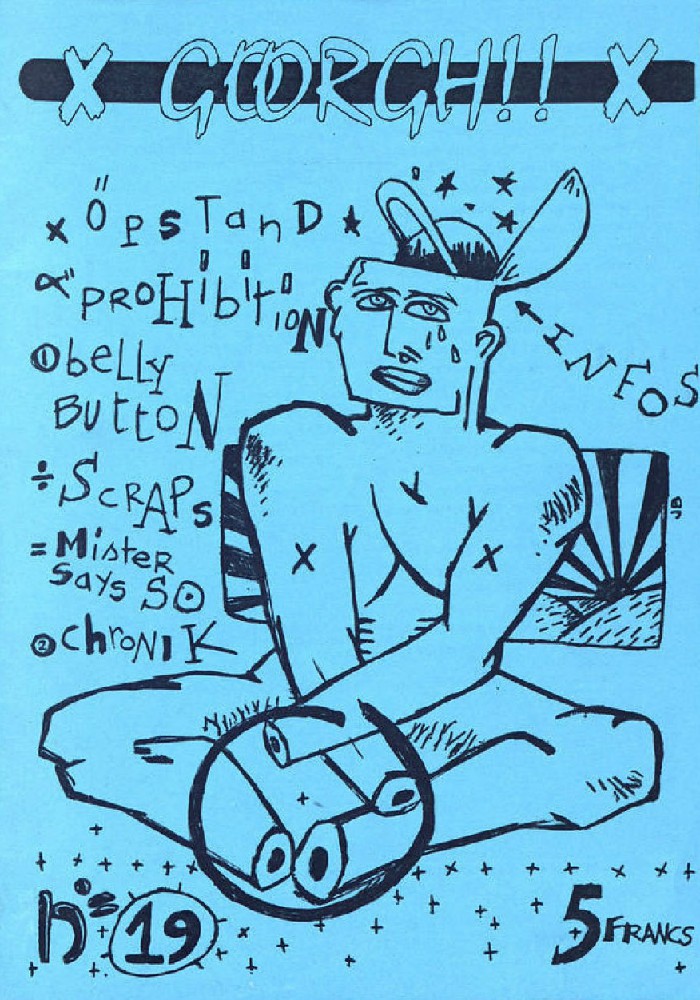 X GOORGH!! X
x Öpstand ★
PROHibitioN
① belly
ButtoN
÷ ScRAPs
= Mister
Says SO
② chroniK
INFOS
JB
n°= 19
5 FRANCS